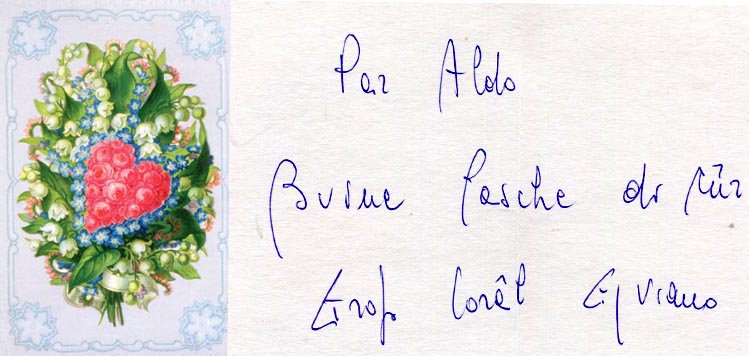 Par Aldo
Buine Pasche di cûr
Grop Corâl Gjviano